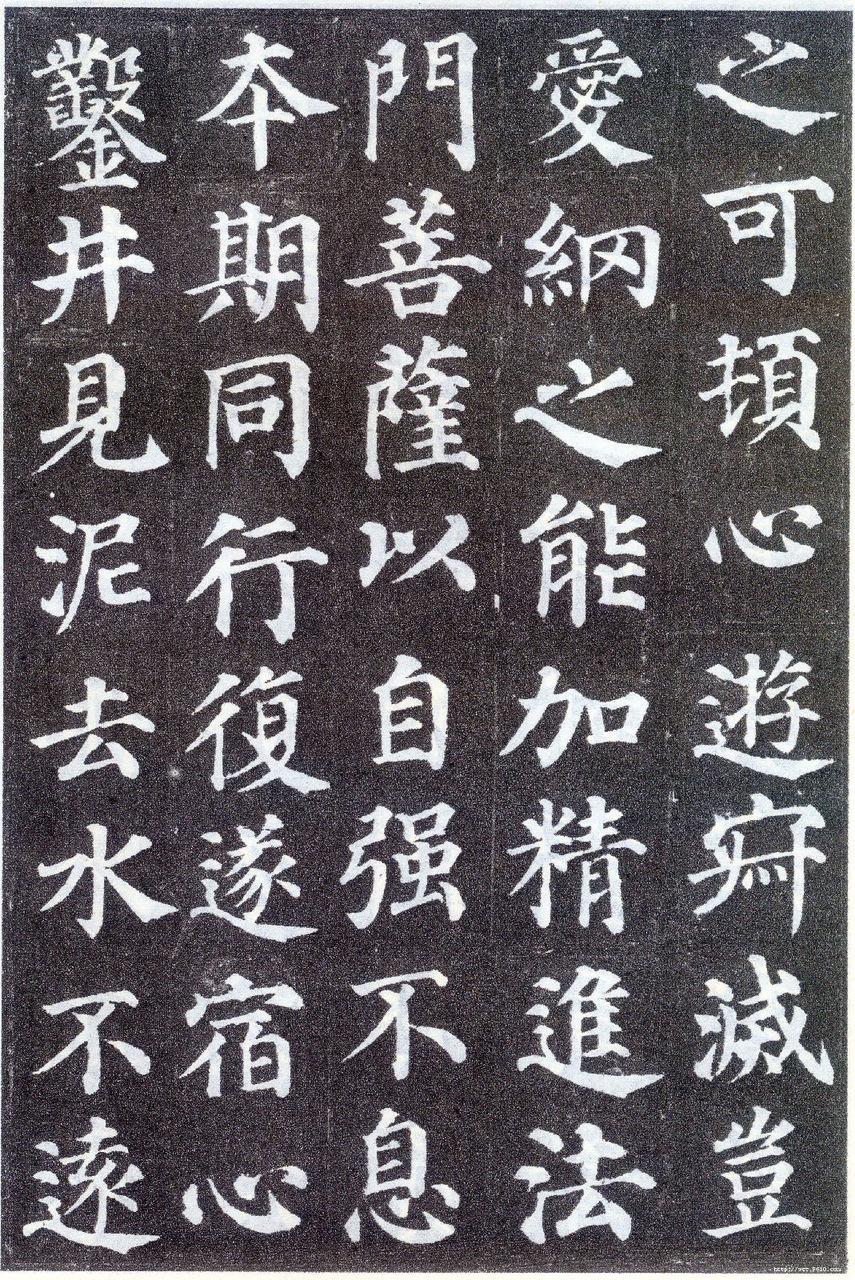 之可頓心遊寂滅豈
愛網之能加精進法
門菩薩以自强不息
本期同行復遂宿心
鑿井見泥去水不遠